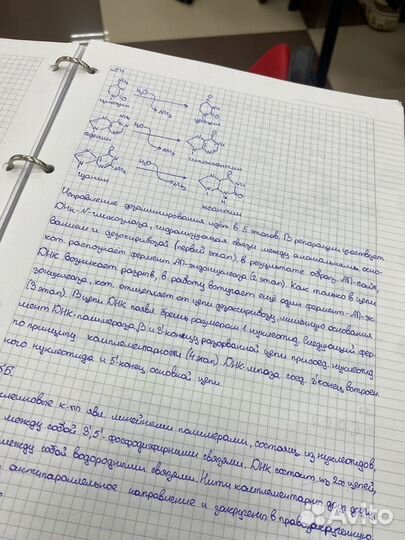 №54
H₂O
NH₃
цитозин
урацил
H₂O
NH₃
аденин
гипоксантин
H₂O
NH₃
гуанин
ксантин
Исправление дезаминирования идёт в 5 этапов. В репарации участвует
ДНК-N-гликозилаза, гидролизующая связи между аномальным осно-
ванием и дезоксирибозой (первый этап), в результате образ. АП-сайт,
кот. распознаёт фермент АП-эндонуклеаза (2 этап). Как только в цепи
ДНК возникает разрыв, в работу вступает ещё один фермент - АП-эк-
зонуклеаза, кот. отщепляет от цепи дезоксирибозу, лишённую основания
(3 этап). В цепи ДНК появл. брешь размером 1 нуклеотид. Следующий фер-
мент ДНК-полимераза β к 3'-концу разорванной цепи присоед. нуклеотид
по принципу комплементарности (4 этап). ДНК-лигаза соед. 3'-конец встроен
ного нуклеотида и 5'-конец основной цепи.
55
к-ты явл. линейными полимерами, состоящ. из нуклеотидов,
между собой 3',5'-фосфодиэфирными связями. ДНК состоит из 2х цепей,
между собой водородными связями. Нити комплементарны друг другу
антипараллельное направление и закручены в правозакрученную
Avito